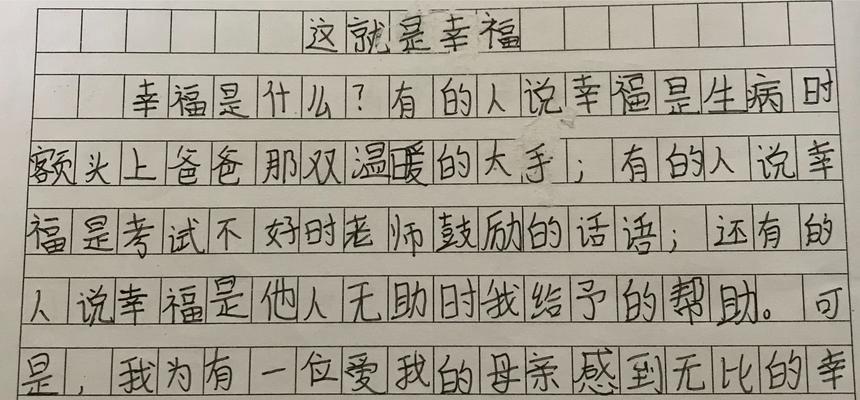 这就是幸福
幸福是什么?有的人说幸福是生病时
额头上爸爸那双温暖的大手;有的人说幸
福是考试不好时老师鼓励的话语;还有的
人说幸福是他人无助时我给予的帮助。可
是,我为有一位爱我的母亲感到无比的幸